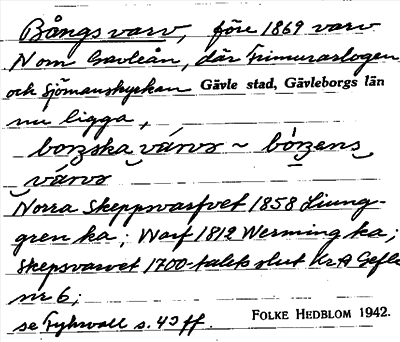 Bångs varv, före 1869 varv
N om Gavleån, där Frimurarlogen
och Sjömanskyrkan Gävle stad, Gävleborgs län
nu ligga,
borzska várvr ~ bórzens
várvr
Norra Skeppsvarfvet 1858 Ljung-
gren ka; Warf 1812 Werming ka;
Skepsvarvet 1700-talets slut Kr A Gefle
nr 6;
se Fyhrvall s. 43 ff.
FOLKE HEDBLOM 1942.